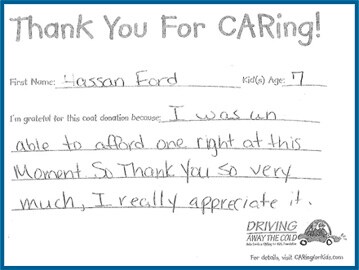 Thank You For CARing!
First Name: Hassan Ford Kid(s) Age: 7
I'm grateful for this coat donation because: I was un
able to afford one right at this
Moment. So Thank You so very
much, I really appreciate it.
DRIVING
AWAY THE COLD
For details, visit CARingforKids.com